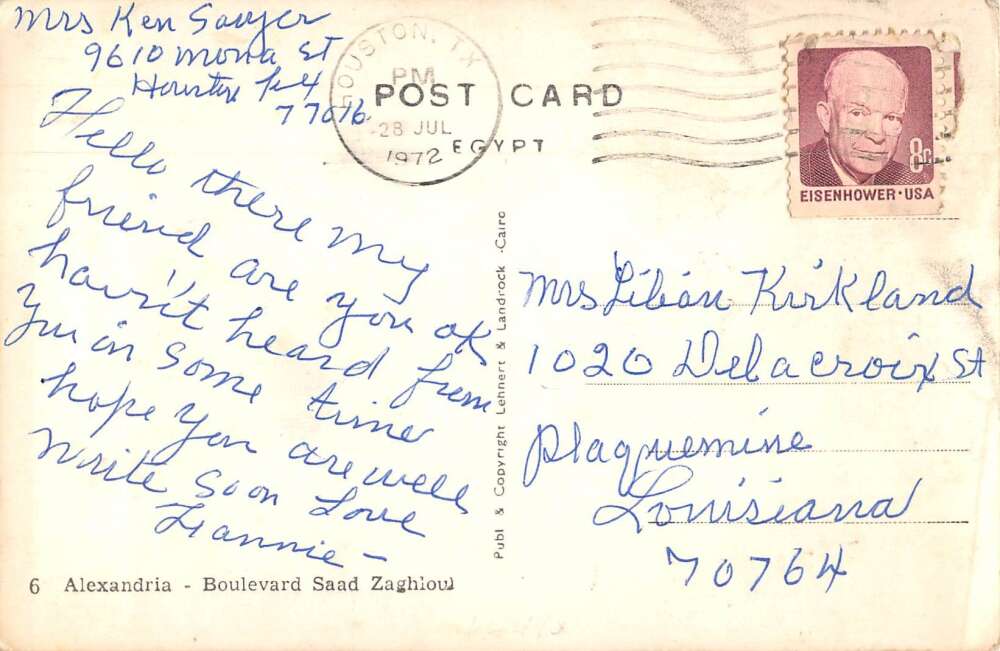 Mrs Ken Sawyer
9610 Mona St
Houston
77016
HOUSTON, TX
PM
28 JUL
1972
POST CARD
EGYPT
8c
EISENHOWER·USA
Hello there my
friend are you ok
havn't heard from
you in some time
hope you are well
Write soon Love
Frannie –
Mrs Lilian Kirkland
1020 Delacroix St
Plaquemine
Louisiana
70764
Publ & Copyright Lennert & Landrock - Cairo
6 Alexandria - Boulevard Saad Zaghloul